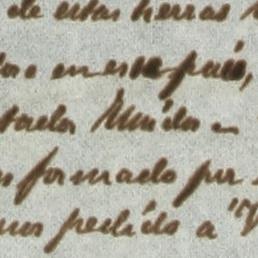 de estas tierras
en este país,
tados Unidos
formado por
pedido a "